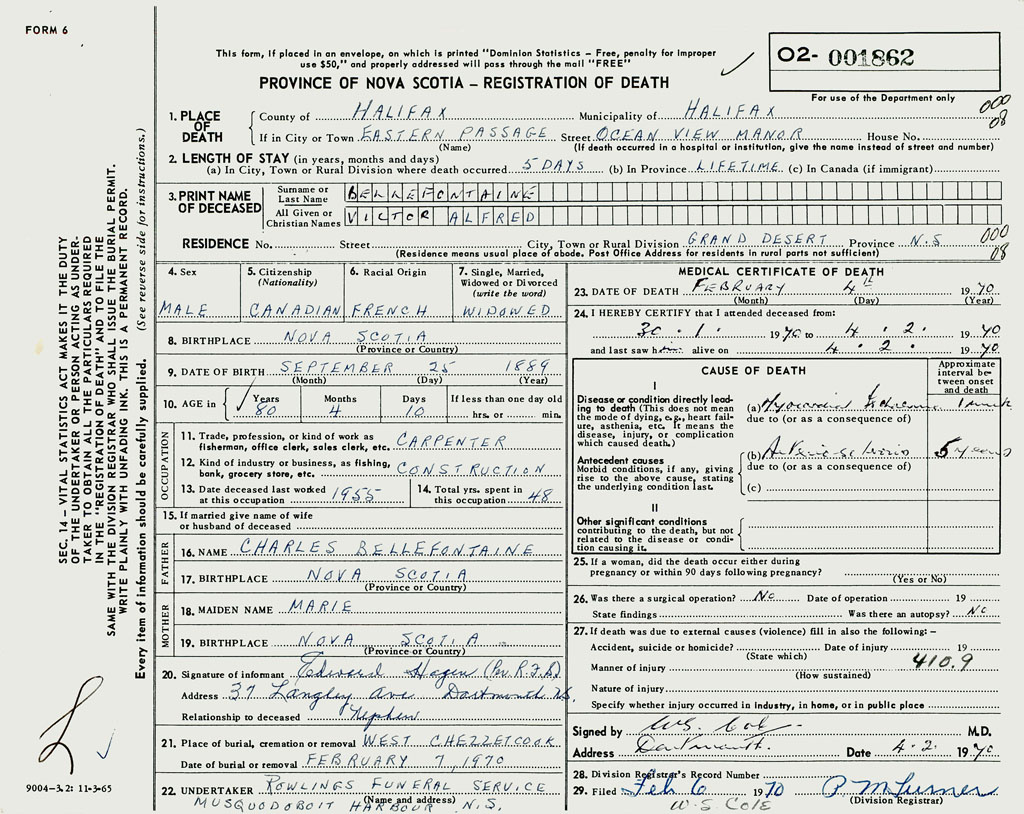 FORM 6
This form, if placed in an envelope, on which is printed "Dominion Statistics – Free, penalty for improper
use $50," and properly addressed will pass through the mail "FREE"
PROVINCE OF NOVA SCOTIA – REGISTRATION OF DEATH
02- 001862
For use of the Department only
1. PLACE OF DEATH
County of HALIFAX Municipality of HALIFAX 000
If in City or Town EASTERN PASSAGE Street OCEAN VIEW MANOR House No. 08
(Name) (If death occurred in a hospital or institution, give the name instead of street and number)
2. LENGTH OF STAY (in years, months and days)
(a) In City, Town or Rural Division where death occurred 5 DAYS (b) In Province LIFETIME (c) In Canada (if immigrant)
3. PRINT NAME OF DECEASED
Surname or Last Name BELLEFONTAINE
All Given or Christian Names VICTOR ALFRED
RESIDENCE No. Street City, Town or Rural Division GRAND DESERT Province N.S 000
(Residence means usual place of abode. Post Office Address for residents in rural parts not sufficient) 08
4. Sex
MALE
5. Citizenship
(Nationality)
CANADIAN
6. Racial Origin
FRENCH
7. Single, Married,
Widowed or Divorced
(write the word)
WIDOWED
8. BIRTHPLACE NOVA SCOTIA
(Province or Country)
9. DATE OF BIRTH SEPTEMBER 25 1889
(Month) (Day) (Year)
10. AGE in Years Months Days If less than one day old
80 4 10 hrs. or min.
OCCUPATION
11. Trade, profession, or kind of work as
fisherman, office clerk, sales clerk, etc. CARPENTER
12. Kind of industry or business, as fishing,
bank, grocery store, etc. CONSTRUCTION
13. Date deceased last worked
at this occupation 1955
14. Total yrs. spent in
this occupation 48
15. If married give name of wife
or husband of deceased
FATHER
16. NAME CHARLES BELLEFONTAINE
17. BIRTHPLACE NOVA SCOTIA
(Province or Country)
MOTHER
18. MAIDEN NAME MARIE
19. BIRTHPLACE NOVA SCOTIA
(Province or Country)
20. Signature of informant Edward Hagen (Per R.F.S.)
Address 37 Langley Ave Dartmouth N.S.
Relationship to deceased Nephew
21. Place of burial, cremation or removal WEST CHEZZETCOOK
Date of burial or removal FEBRUARY 7, 1970
22. UNDERTAKER ROWLINGS FUNERAL SERVICE
(Name and address)
MUSQUODOBOIT HARBOUR N.S.
MEDICAL CERTIFICATE OF DEATH
23. DATE OF DEATH FEBRUARY 4th 1970
(Month) (Day) (Year)
24. I HEREBY CERTIFY that I attended deceased from:
30 . 1. 1970 to 4 . 2. 1970
and last saw him alive on 4 . 2. 1970
CAUSE OF DEATH
Approximate
interval be-
tween onset
and death
I
Disease or condition directly lead-
ing to death (This does not mean
the mode of dying, e.g., heart fail-
ure, asthenia, etc. It means the
disease, injury, or complication
which caused death.)
(a) Myocardial Ischaemia
due to (or as a consequence of)
Antecedent causes
Morbid conditions, if any, giving
rise to the above cause, stating
the underlying condition last.
(b) Arteriosclerosis 5 years
due to (or as a consequence of)
(c)
II
Other significant conditions
contributing to the death, but not
related to the disease or condi-
tion causing it.
25. If a woman, did the death occur either during
pregnancy or within 90 days following pregnancy?
(Yes or No)
26. Was there a surgical operation? No Date of operation 19
State findings Was there an autopsy? No
27. If death was due to external causes (violence) fill in also the following: –
Accident, suicide or homicide? Date of injury 19
(State which) 410.9
Manner of injury
(How sustained)
Nature of injury
Specify whether injury occurred in industry, in home, or in public place
Signed by W.S. Cole M.D.
Address Dartmouth. Date 4.2 1970
28. Division Registrar's Record Number
29. Filed Feb 6 1970 P M Turner
(Division Registrar)
W. S. COLE
SEC. 14 – VITAL STATISTICS ACT MAKES IT THE DUTY
OF THE UNDERTAKER OR PERSON ACTING AS UNDER-
TAKER TO OBTAIN ALL THE PARTICULARS REQUIRED
IN THE "REGISTRATION OF DEATH" AND TO FILE THE
SAME WITH THE DIVISION REGISTRAR WHO SHALL ISSUE THE BURIAL PERMIT.
WRITE PLAINLY WITH UNFADING INK. THIS IS A PERMANENT RECORD.
Every item of information should be carefully supplied. (See reverse side for instructions.)
9004-3.2: 11-3-65